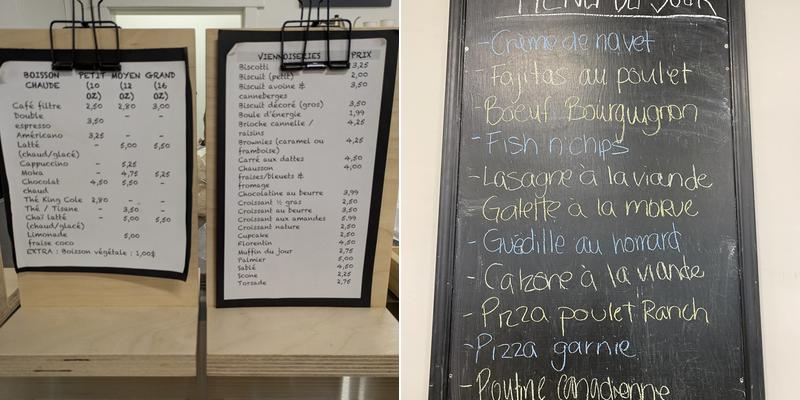 BOISSON CHAUDE PETIT (10 OZ) MOYEN (12 OZ) GRAND (16 OZ)
Café filtre 2,50 2,80 3,00
Double - -
espresso 3,50
Américano 3,25 - -
Latté - 5,00 5,50
(chaud/glacé)
Cappuccino - 5,25
Moka - 4,75 5,25
Chocolat 4,50 5,50 -
chaud
Thé King Cole 2,80 - -
Thé / Tisane - 3,50 -
Chaï latté - 5,00 5,50
(chaud/glacé)
Limonade 5,00
fraise coco
EXTRA : Boisson végétale : 1,00$
VIENNOISERIES PRIX
Biscotti 3,25
Biscuit (petit) 2,00
Biscuit avoine & 3,50
canneberges
Biscuit décoré (gros) 3,50
Boule d'énergie 1,99
Brioche cannelle / 4,25
raisins
Brownies (caramel ou 4,25
framboise)
Carré aux dattes 4,50
Chausson 4,00
fraises/bleuets &
fromage
Chocolatine au beurre 3,99
Croissant ½ gras 2,50
Croissant au beurre 3,50
Croissant aux amandes 5,99
Croissant nature 2,50
Cupcake 2,50
Florentin 4,50
Muffin du jour 2,75
Palmier 5,00
Sablé 4,50
Scone 2,25
Torsade 2,75
MENU DU JOUR
- Crème de navet
- Fajitas au poulet
- Boeuf Bourguignon
- Fish n'chips
- Lasagne à la viande
Galette à la morue
- Guédille au homard
- Calzone à la viande
- Pizza poulet Ranch
- Pizza garnie
- Poutine Canadienne